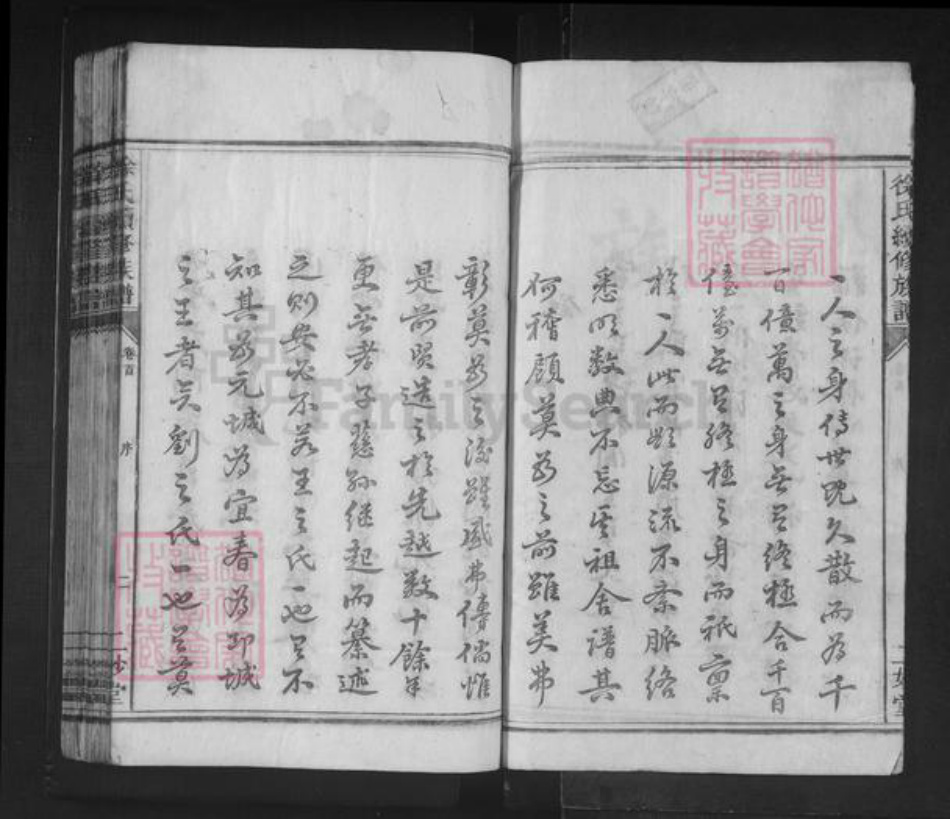 一人之身傳世既久散而為千
百億萬之身無了終極合千百
億萬無了終極之身而祇稟
於一人此而欲源流不紊脈絡
悉明數典不忘其祖舍譜其
何稽顧莫為之前雖美弗
彰莫為之後雖盛弗傳倘惟
是前賢造之於先越數十餘年
更無孝子慈孫繼起而纂述
之則安必不若王之氏一也而不
知其為元城為宜春為邛城
之王者矣劉之氏一也而莫
徐氏續修族譜
卷首
序
二
FamilySearch